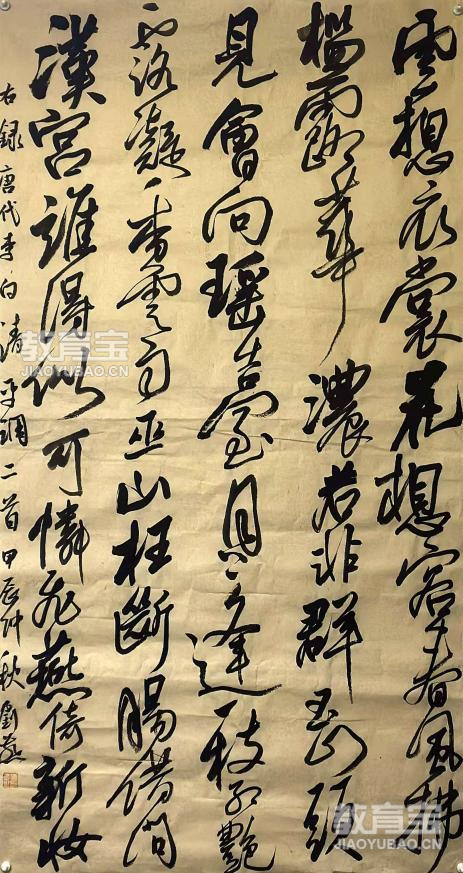 雲想衣裳花想容春風拂
檻露華濃若非群玉山頭
見會向瑶臺月下逢一枝紅艷
露凝香雲雨巫山枉斷腸借問
漢宮誰得似可憐飛燕倚新妝
右録唐代李白清平調二首甲辰仲秋劉
教育宝
JIAOYUBAO.CN
教育宝
JIAOYUBAO.CN